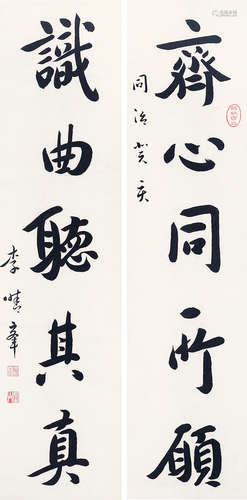 齊心同所願
同治癸亥
識曲聽其真
李晴峯